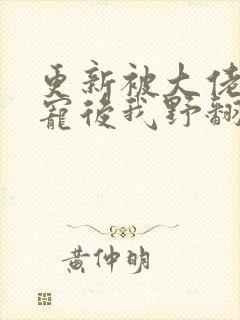 更新被大佬
寵後我野翻
黃仲明